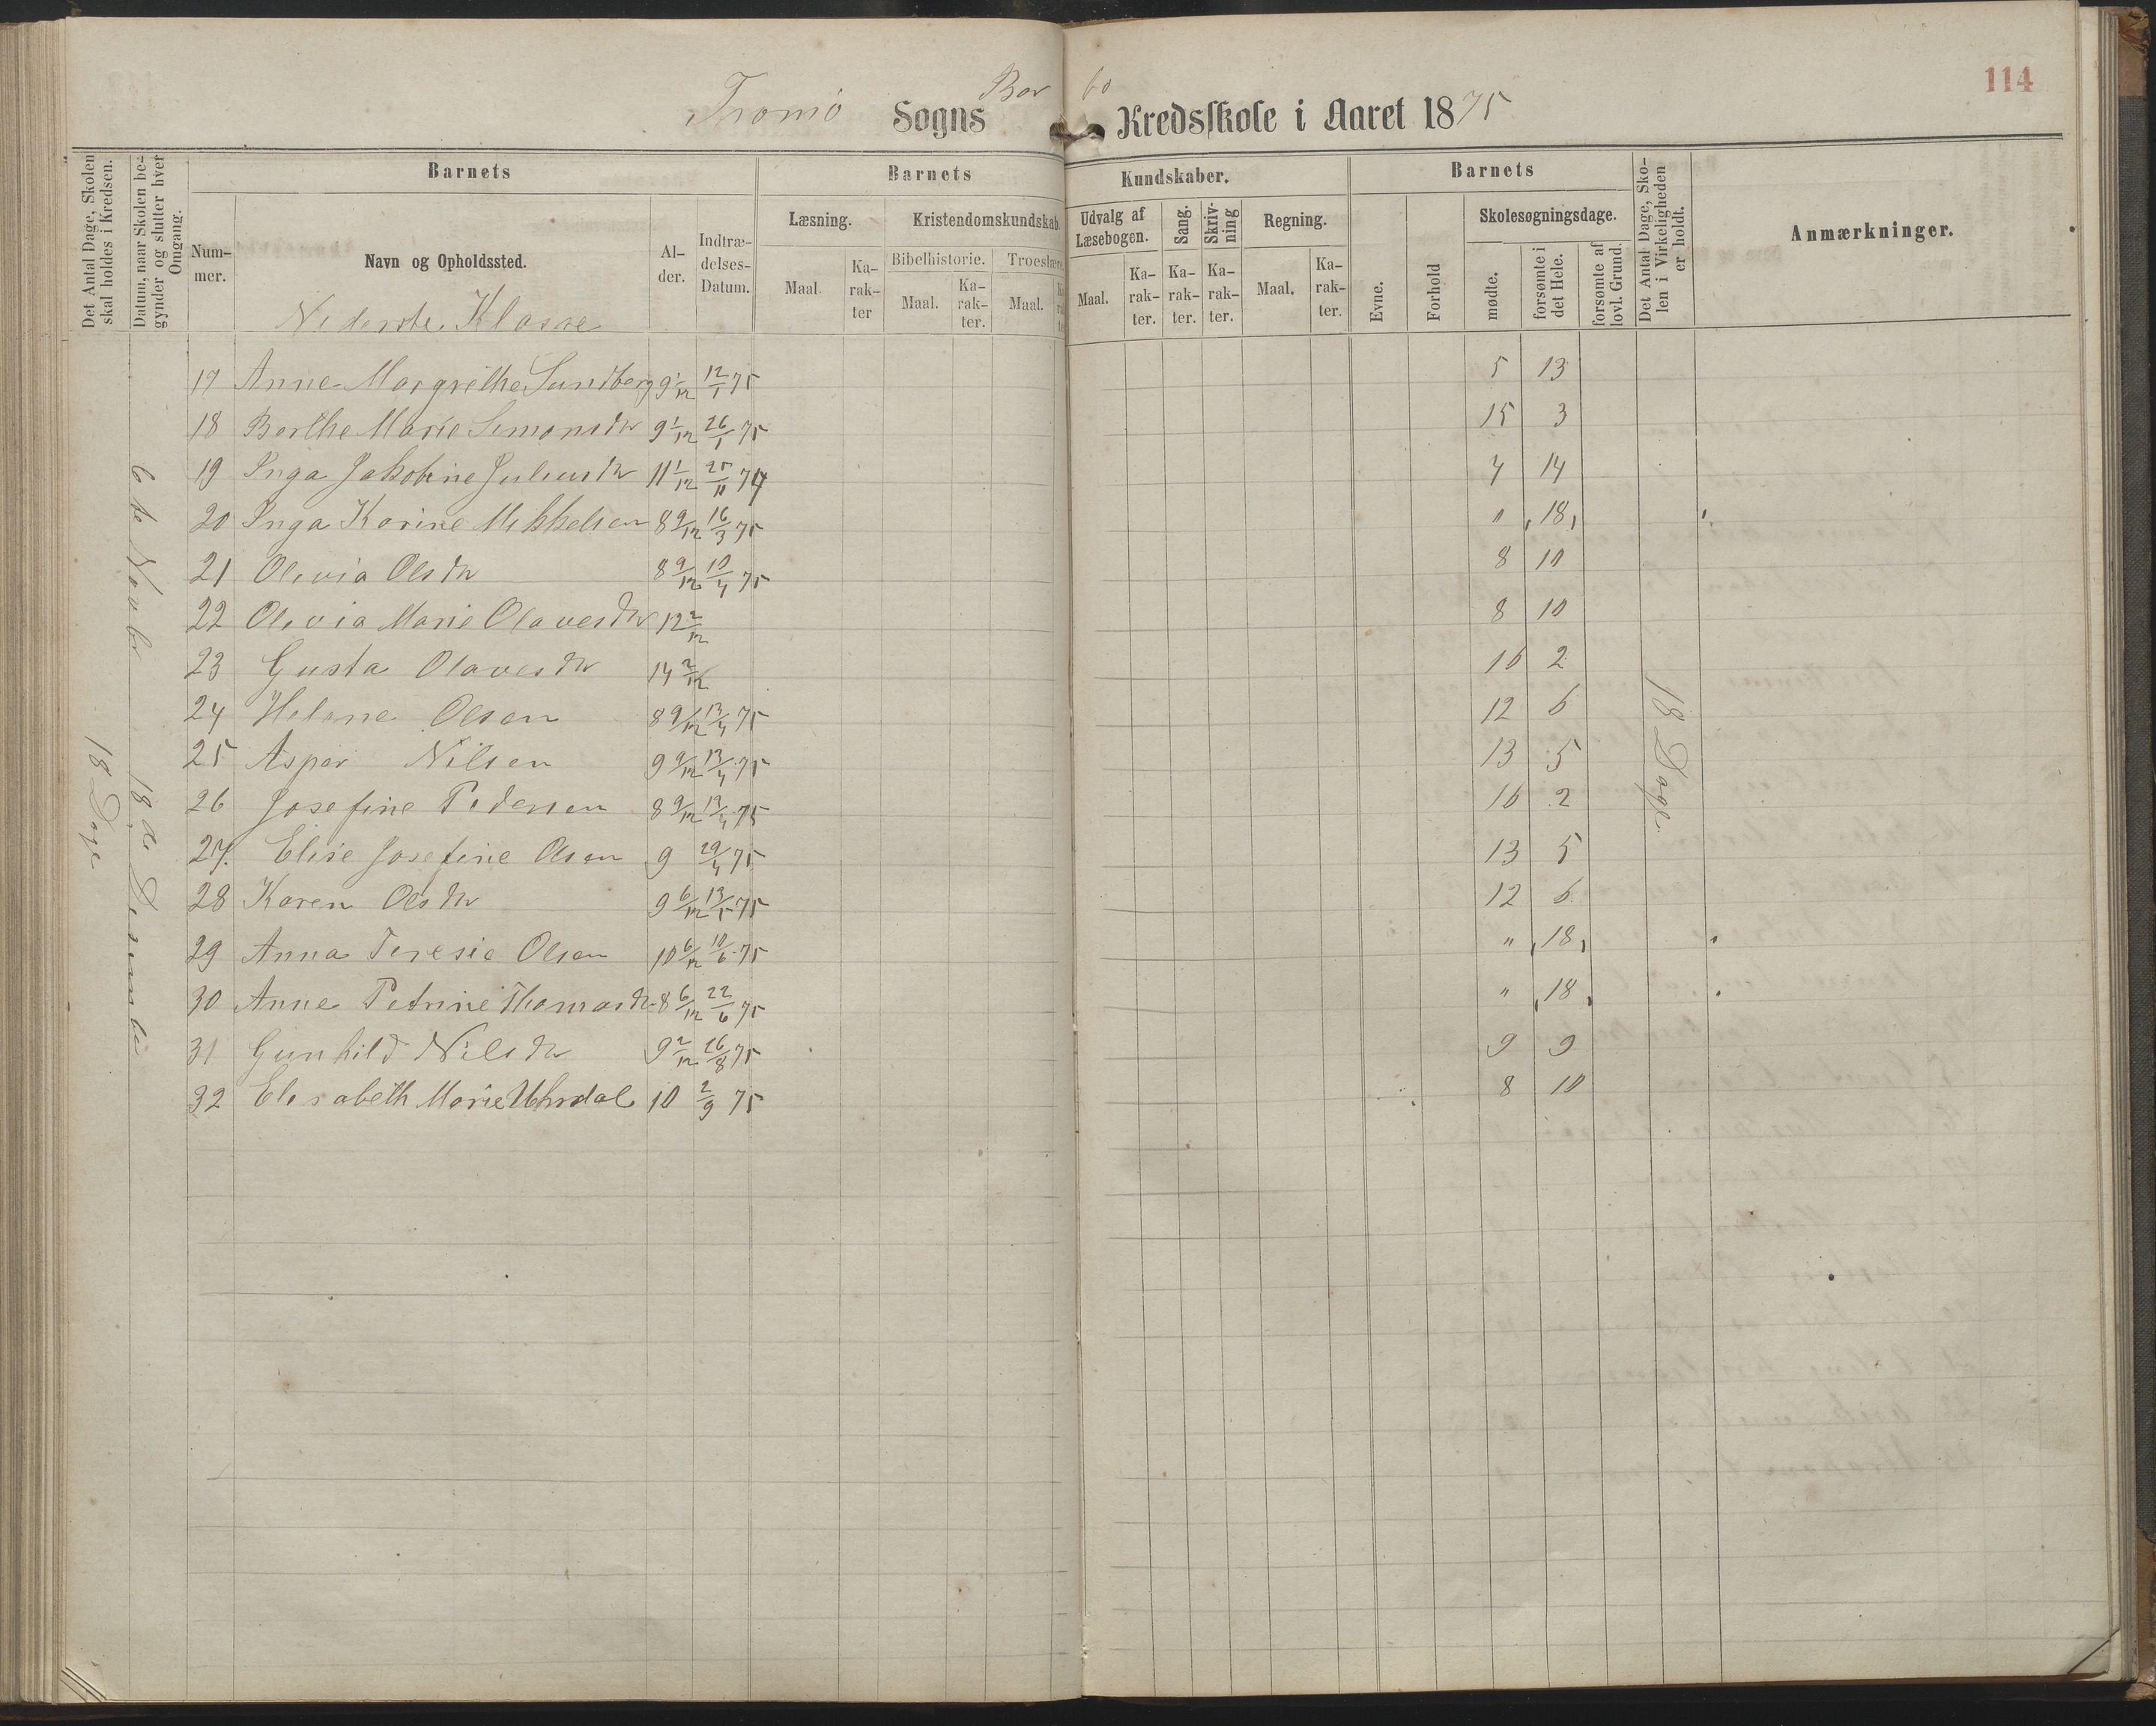 114
Tromø Sogns Bor bo Kredsskole i Aaret 1875
Det Antal Dage, Skolen skal holdes i Kredsen.
Datum, naar Skolen begynder og slutter hver Omgang.
Barnets
Barnets Kundskaber.
Barnets
Det Antal Dage, Skolen i Virkeligheden er holdt.
Anmærkninger.
Nummer.
Navn og Opholdssted.
Alder.
Indtrædelses-Datum.
Læsning.
Kristendomskundskab.
Udvalg af Læsebogen.
Sang.
Skrivning
Regning.
Evne.
Forhold
Skolesøgningsdage.
Bibelhistorie.
Troeslære.
Maal.
Karakter
Maal.
Karakter.
Maal.
Maal.
Karakter.
Karakter.
Karakter.
Maal.
Karakter.
mødte.
forsømte i det Hele.
forsømte af lovl. Grund.
Nederste Klasse
18 Dage
6te Novbr 18de Desember
18 Dage.
17 Anne Margrethe Sundberg 9 1/12 12/1 75 5 13
18 Berthe Marie Simonsdtr 9 1/12 26/1 75 15 3
19 Inga Jakobine Juliusdtr 11 1/12 25/11 74 4 14
20 Inga Karine Mikkelsen 8 9/12 16/3 75 " 18
21 Olivia Olsdtr 8 9/12 10/4 75 8 10
22 Olivia Marie Olavesdtr 12 2/12 8 10
23 Gusta Olavesdtr 14 2/12 16 2
24 Helene Olsen 8 9/12 13/4 75 12 6
25 Aspor Nilsen 9 9/12 13/4 75 13 5
26 Josefine Pedersen 8 9/12 13/4 75 16 2
27. Elise Josefine Olsen 9 29/4 75 13 5
28 Karen Olsdtr 9 6/12 13/5 75 12 6
29 Anna Teresie Olsen 10 6/12 10/6 75 " 18
30 Anne Petrine Thomasdtr 8 6/12 22/6 75 " 18
31 Gunhild Nilsdtr 9 2/12 26/8 75 9 9
32 Elisabeth Marie 10 2/9 75 8 10